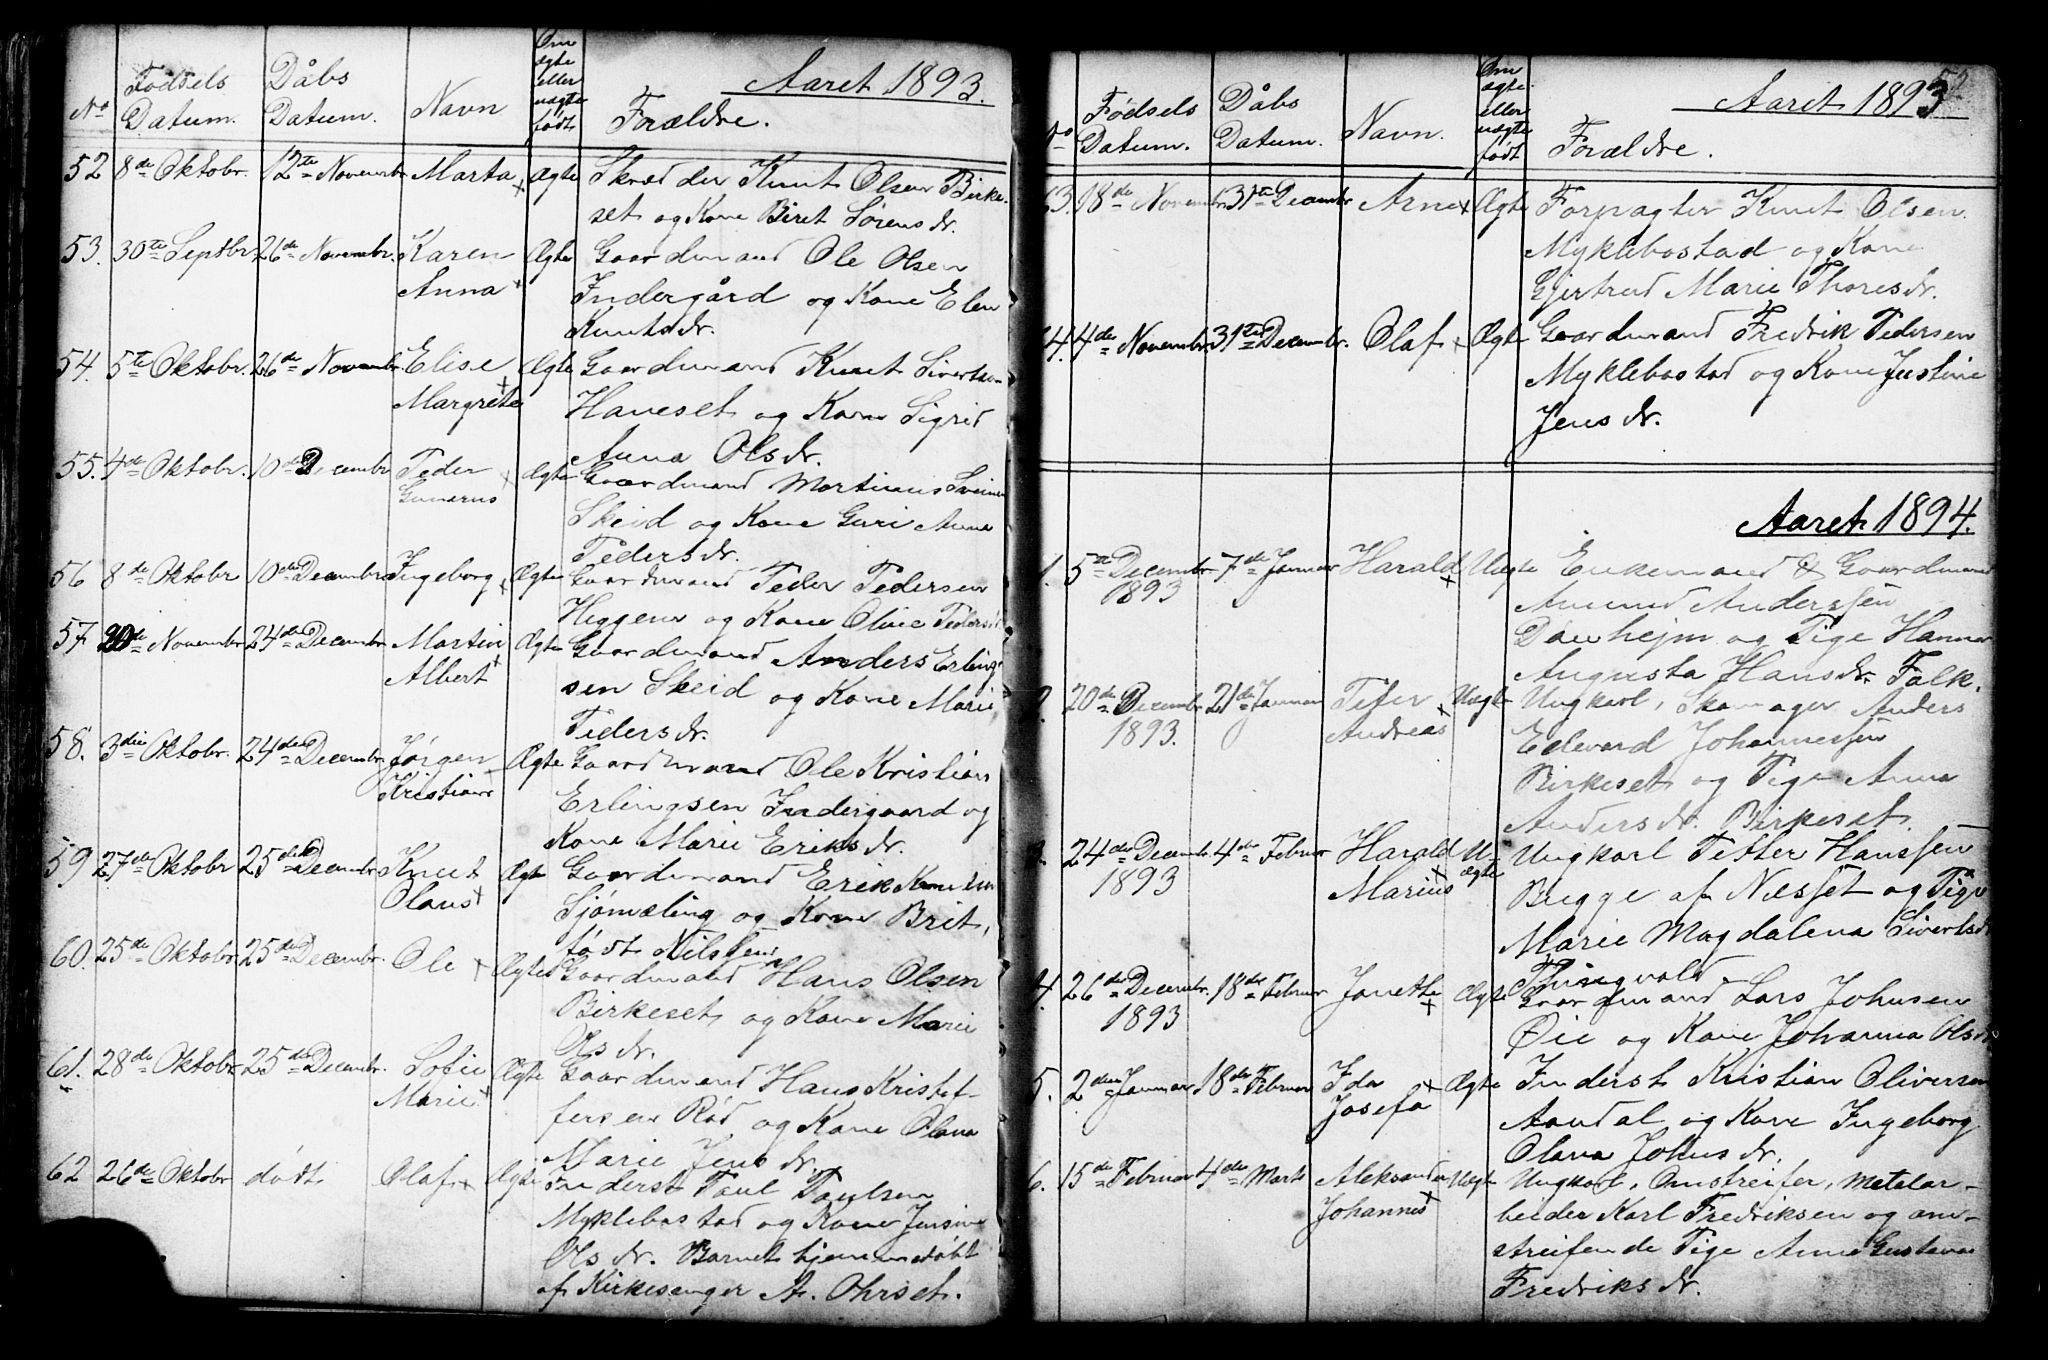 Aaret 1893.
No Fødsels Datum. Dåbs Datum. Navn Om ægte eller uægte født Forældre.
52 8de Oktobr. 12te Novembr Marta Ægte Skrædder Knut Olsen Birke-
set og Kone Beret Sørensdr.
53. 30te Septbr 26de Novembr. Karen Ægte Gaardmand Ole Olsen
Anna Indergård og Kone Elen
Knutsdr.
54. 5te Oktobr. 26de Novembr. Elise Ægte Gaardmand Knut Sivertsen
Margrete Haneset og Kone Sigrid
Anna Olsdr.
55. 4de Oktobr. 10de Decembr Peder Ægte Gaardmand Martinus
Gunerus Skeid og Kone Guri Anna
Pedersdr.
56 8de Oktobr 10de Decembr Ingeborg Ægte Gaardmand Peder Pedersen
og Kone Oline Pedersdr
57 20de Novembr 24de Decembr Martin Ægte Gaardmand Anders Erling-
Albert sen Skeid og Kone Marie
Pedersdr.
58. 3die Oktobr. 24de Decembr. Jørgen Ægte Gaardmand Ole Kristian
Kristian Erlingsen Indergaard og
Kone Marie Eriksdr.
59 27de Oktobr 25de Decembr Knut Ægte Gaardmand Erik Knutsen
Olaus Sjømæling og Kone Brit,
født Nilsen
60. 25de Oktobr 25de Decembr. Ole Ægte Gaardmand Hans Olsen
Birkeset og Kone Marie
Olsdr.
61. 28de Oktobr 25de Decembr. Sofie Ægte Gaardmand Hans Kristof-
Marie fersen Rød og Kone Olana
Marie Jensdr.
62 26de Oktobr dødt Olaf Ægte Inderst Paul Paulsen
Myklebostad og Kone Jensine
Olsdr. Barnet hjemmedøbt
af Kirkesanger A. Ohrset.
52
Aaret 1893
No Fødsels Datum. Dåbs Datum. Navn. Om ægte eller uægte født Forældre.
63. 18de Novembr 31te Decembr Arne Ægte Forpagter Knut Olsen
Myklebostad og Kone
Gjertrud Marie Thoresdr.
4. 4de Novembr. 31te Decembr. Olaf Ægte Gaardmand Fredrik Pedersen
Myklebostad og Kone Justine
Jensdr.
Aaret 1894.
1. 5te Decembr 7de Januar Harald Uægte Enkemand & Gaardmand
1893 Amund Anderssen
Dauhejm og Pige Hanna
Augusta Hansdr. Falk.
2. 20de Decembr 21de Januar Peter Uægte Ungkarl, Skomager Anders
1893. Andreas Edevard Johannessen
Birkeset og Pige Anna
Andersdr. Birkeset.
3. 24de Decembr. 4de Februar Harald U- Ungkarl Petter Hanssen
1893 Marius ægte Bugge af Næsset og Pige
Marie Magdalena Sivertsdr
Thingvold.
4. 26de Decembr. 18de Februar Janette Ægte Gaardmand Lars Johnsen
1893 Øie og Kone Johanna Olsdr
5. 2den Januar 18de Februar Ida Ægte Inderst Kristian Oliversen
Josefa Aandal og Kone Ingeborg
Olava Johnsdr.
6. 15de Februar 4de Marts Aleksander Uægte Ungkarl, Omstreifer, Metalar-
Johannes beider Karl Fredriksen og om-
streifende Pige Anne Gustava
Fredriksdr.